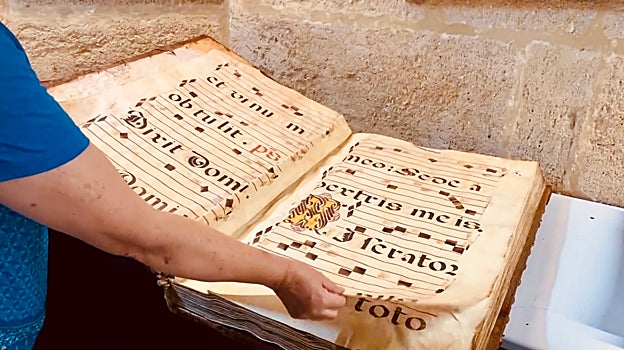 et vinu m
obtulit. ps
Dixit Domi
Domi
neo: Sede a
dextris meis
Iserator
toto